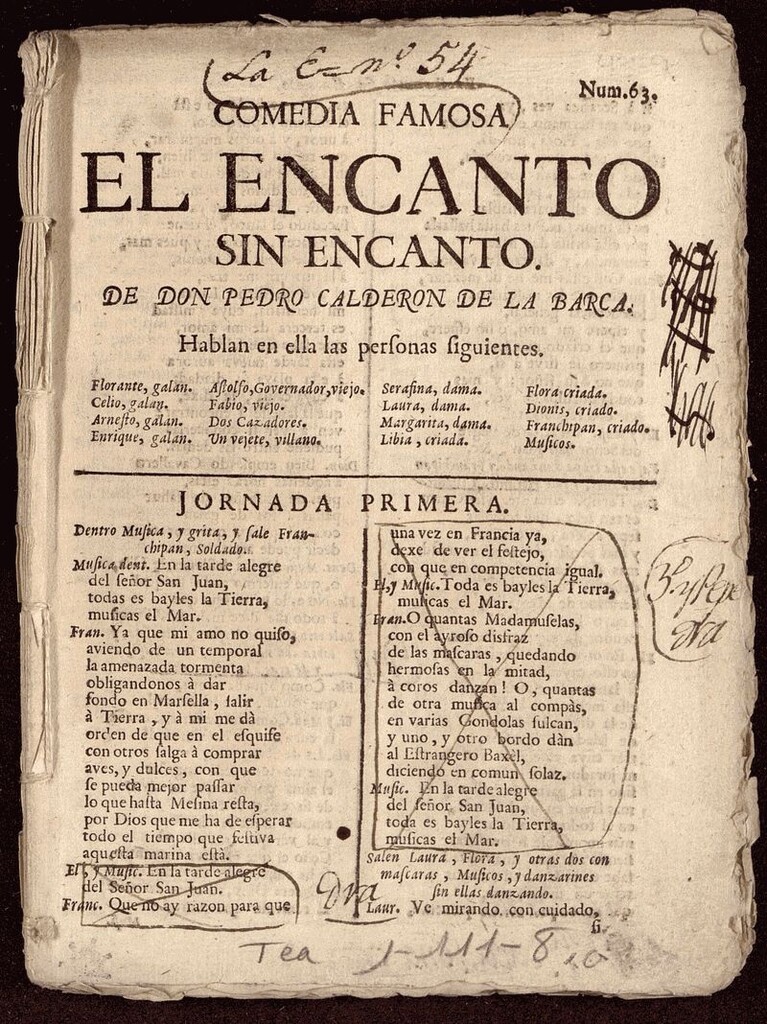 La C= nº 54
Num.63.
COMEDIA FAMOSA
EL ENCANTO
SIN ENCANTO.
DE DON PEDRO CALDERON DE LA BARCA.
Hablan en ella las perſonas ſiguientes.
Florante, galan.
Celio, galan.
Arneſto, galan.
Enrique, galan.
Aſtolfo,Governador,viejo.
Fabio, viejo.
Dos Cazadores.
Un vejete, villano.
Serafina, dama.
Laura, dama.
Margarita, dama.
Libia, criada.
Flora criada.
Dionis, criado.
Franchipan, criado.
Muſicos.
JORNADA PRIMERA.
Dentro Muſica, y grita, y ſale Fran-
chipan, Soldado.
Muſica dent. En la tarde alegre
del ſeñor San Juan,
todas es bayles la Tierra,
muſicas el Mar.
Fran. Ya que mi amo no quiſo,
aviendo de un temporal
la amenazada tormenta
obligandonos à dar
fondo en Marſella, ſalir
à Tierra, y à mi me dà
orden de que en el eſquife
con otros ſalga à comprar
aves, y dulces, con que
ſe pueda mejor paſſar
lo que haſta Meſina reſta,
por Dios que me ha de eſperar
todo el tiempo que feſtiva
aqueſta marina eſtà.
El, y Muſic. En la tarde alegre
del Señor San Juan.
Franc. Que no ay razon para que
una vez en Francia ya,
dexe de ver el feſtejo,
con que en competencia igual.
El, y Muſic. Toda es bayles la Tierra,
muſicas el Mar.
Fran. O quantas Madamuſelas,
con el ayroſo disfraz
de las maſcaras, quedando
hermoſas en la mitad,
à coros danzan! O, quantas
de otra muſica al compàs,
en varias Gondolas ſulcan,
y uno, y otro bordo dàn
al Eſtrangero Baxèl,
diciendo en comun ſolaz.
Muſic. En la tarde alegre
del ſeñor San Juan,
toda es bayles la Tierra,
muſicas el Mar.
Salen Laura, Flora, y otras dos con
maſcaras, Muſicos, y danzarines
ſin ellas danzando.
Laur. Ve mirando con cuidado,
ſi
Tea 1-111-8